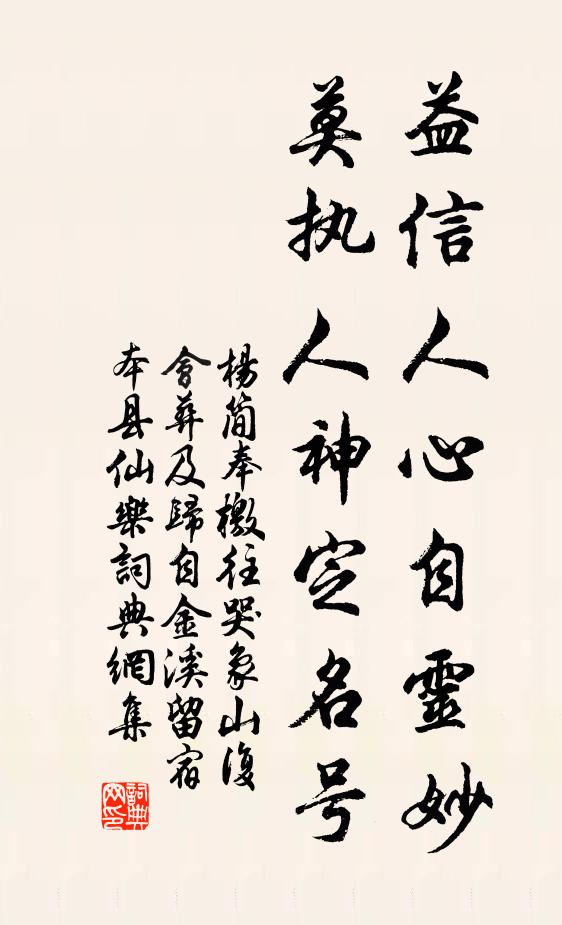 益信人心自靈妙
莫执人神定名号
楊简奉檄往哭象山復
會葬及歸自金溪留宿
本县仙樂詞典網集
詞典
网印